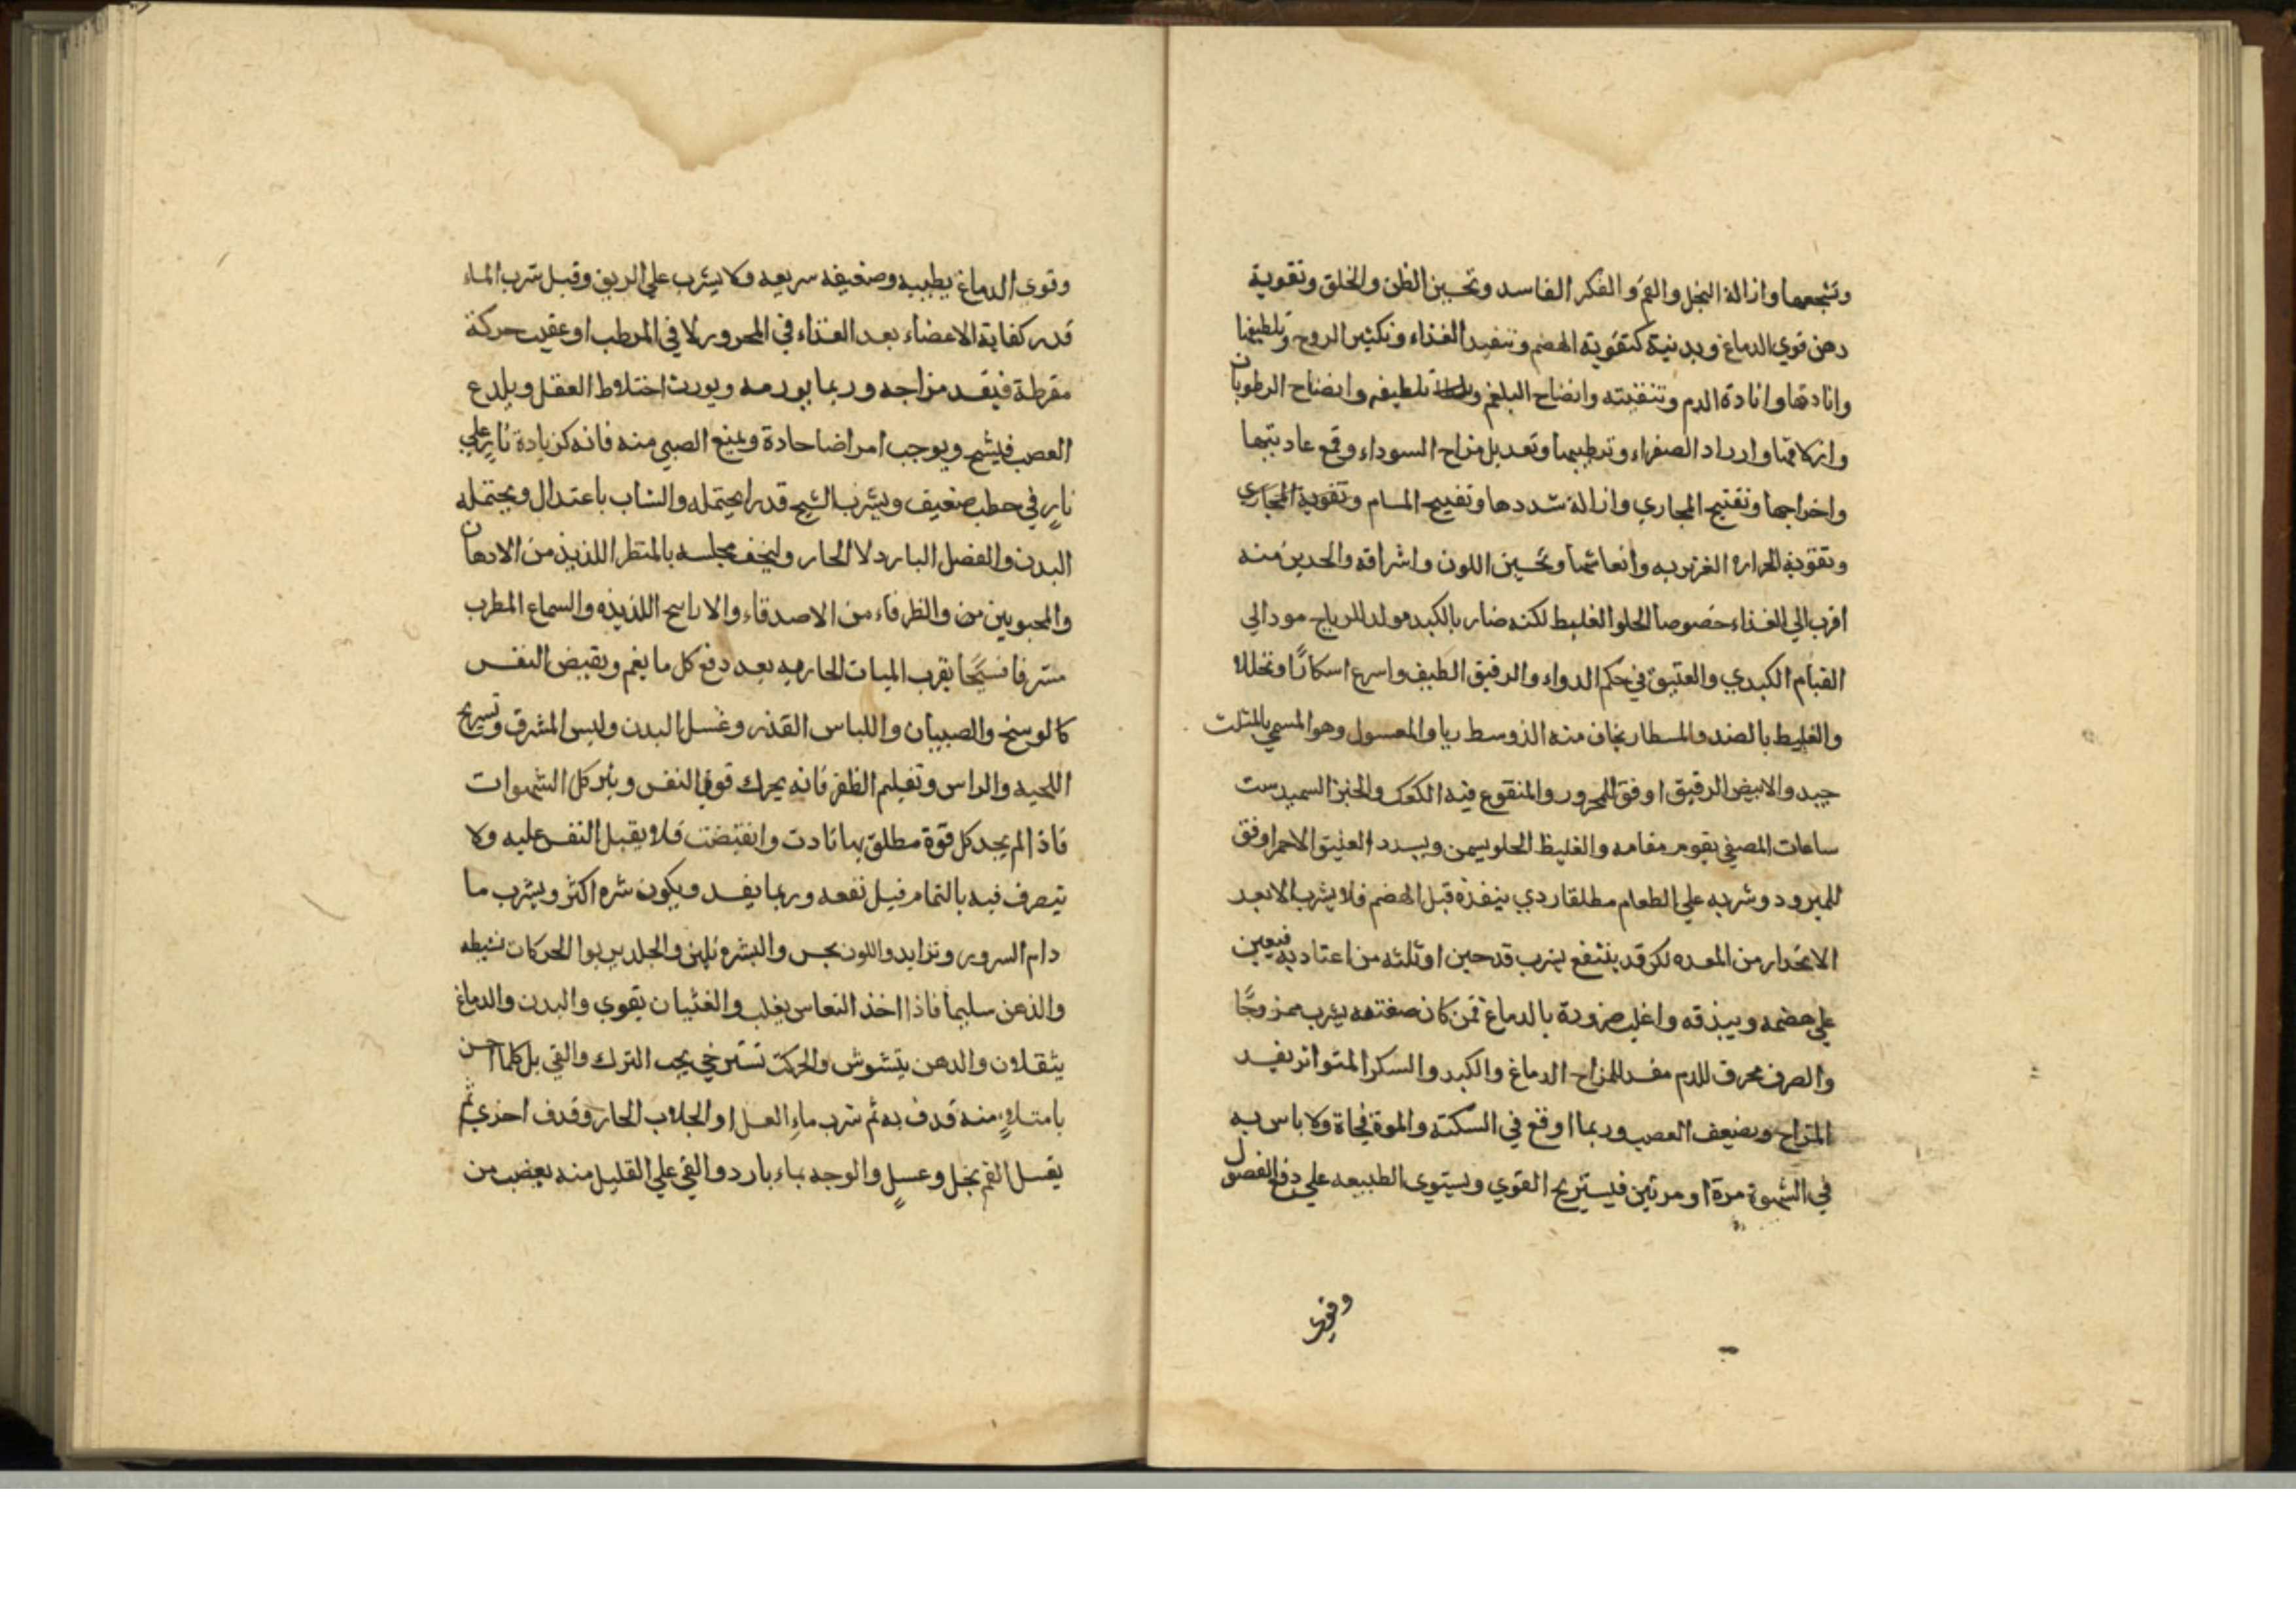 وتشجعها وازالة البخل والغم والفكر الفاسد وتحسين الظن والخلق وتقوية
دهن قوي الدماغ وبدنية كتقوية الهضم وتنفيد الغذاء وتكثير الروح وتلطيفها
وانارتها وانارة الدم وتنقيته وانضاح البلغم وتلطيفه وانضاح الرطوبان
وازلاقها وادرار الصفراء وترطيبها وتعديل مزاح السوداء وقمع عاديتها
واخراجها وتفتيح المجاري وازالة شددها وتفيح المسام وتقوية المجاري
وتقوية الحراره الغزيزيه وانعاشها وتحسين اللون واشراقه والحديث منه
اقرب الي الغذاء خصوصا الحلو الغليط لكنه ضار بالكبد مولد للرياح مود الي
القيام الكبدي والعتيق في حكم الدواء والرقيق الطيف واسرع اسكارًا وتخللا
والغليط بالضد والمسطار يخاف منه الذوسط ريا والمعسول وهو المسمي بالمثلث
جيد والابيض الرقيق اوفق للمحرور والمنقوع فيه الكعك والخبز السميد ست
ساعات المصفي يقوم مقامه والغليظ الحلو يسمن ويسدد العتيق الاحمر اوفق
للمبرود وشربه علي الطعام مطلقا ردي ينفذه قبل الهضم فلا يشرب الا بعد
الانحدار من المعده لكن قد ينتفع بشرب قدحين او ثلثه من اعتاد به فيعين
علي هضمه ويبذقه واغلب ضرورة بالدماغ فمن كان ضعفته يشرب ممزوجًا
والصرف محرق للدم مفسد للمزاح الدماغ والكبد والسكر المتواتر يفسد
المزاح ويضيعف العصب وربما اوقع في السكتة والموة فجاة ولا باس به
في الشهوة مرة او مرتين فيستريح القوي ويستوي الطبيعه علي دفع الفصول
وقوي
وقوي الدماغ يطيبه وضعيفه سريعه ولا يشرب علي الريق وقبل شرب الماء
قدر كفاية الاعضاء بعد الغذاء في المحرور لا في المرطب او عقيب حركة
مفرطة فيفسد مزاجه وربما يورمه ويورث اختلاط العقل ويلدع
العصب فيشج ويوجب امراضا حادة ويمنع الصبي منه فانه كزيادة نارٍ علي
نارٍ في حطب ضعيف ويشرب الشيح قدر ايحتمله والشاب باعتدال ويحتمله
البدن والفضل البارد لا الحار وليخف مجلسه بالمنظر اللذيذ من الادهان
والمحبوبين من والظرفاء من الاصدقاء والاراسح اللذيذه والسماع المطرب
مشرفا فسيحًا بقرب الميات الحاريه بعد دفع كل ما يغم ويقبض النفس
كالوسخ والصبيان واللباس القذر وغسل البدن ولبس المشرق وتسريح
اللحيه والراس وتقيلم الظفر فانه يحرك قوي النفس وينر كل الشهوات
فاذا لم يجد كل قوة مطلق بها تادت وانقبضت فلا يقبل النفس عليه ولا
يتصرف فيه بالتمام فيل نفعه وربما يفسد ويكون شره اكثر ويشرب ما
دام السرور وتزايد واللون يحس والبشره تلين والجلد يربوا الحركات نشيطه
والذهن سليما فاذا اخذ النعاس يغلب والغثيان يقوي والبدن والدماغ
يثقلان والدهن يتشوش والحركت تسترخي يجب الترك والقي بل كلما احس
بامتلاءٍ منه قدف به ثم شرب ماء العسل او الجلاب الحار وقدف اخري ثم
يغسل الفم بخل وعسلٍ والوجه بماء بارد والقي علي القليل منه يعضب من